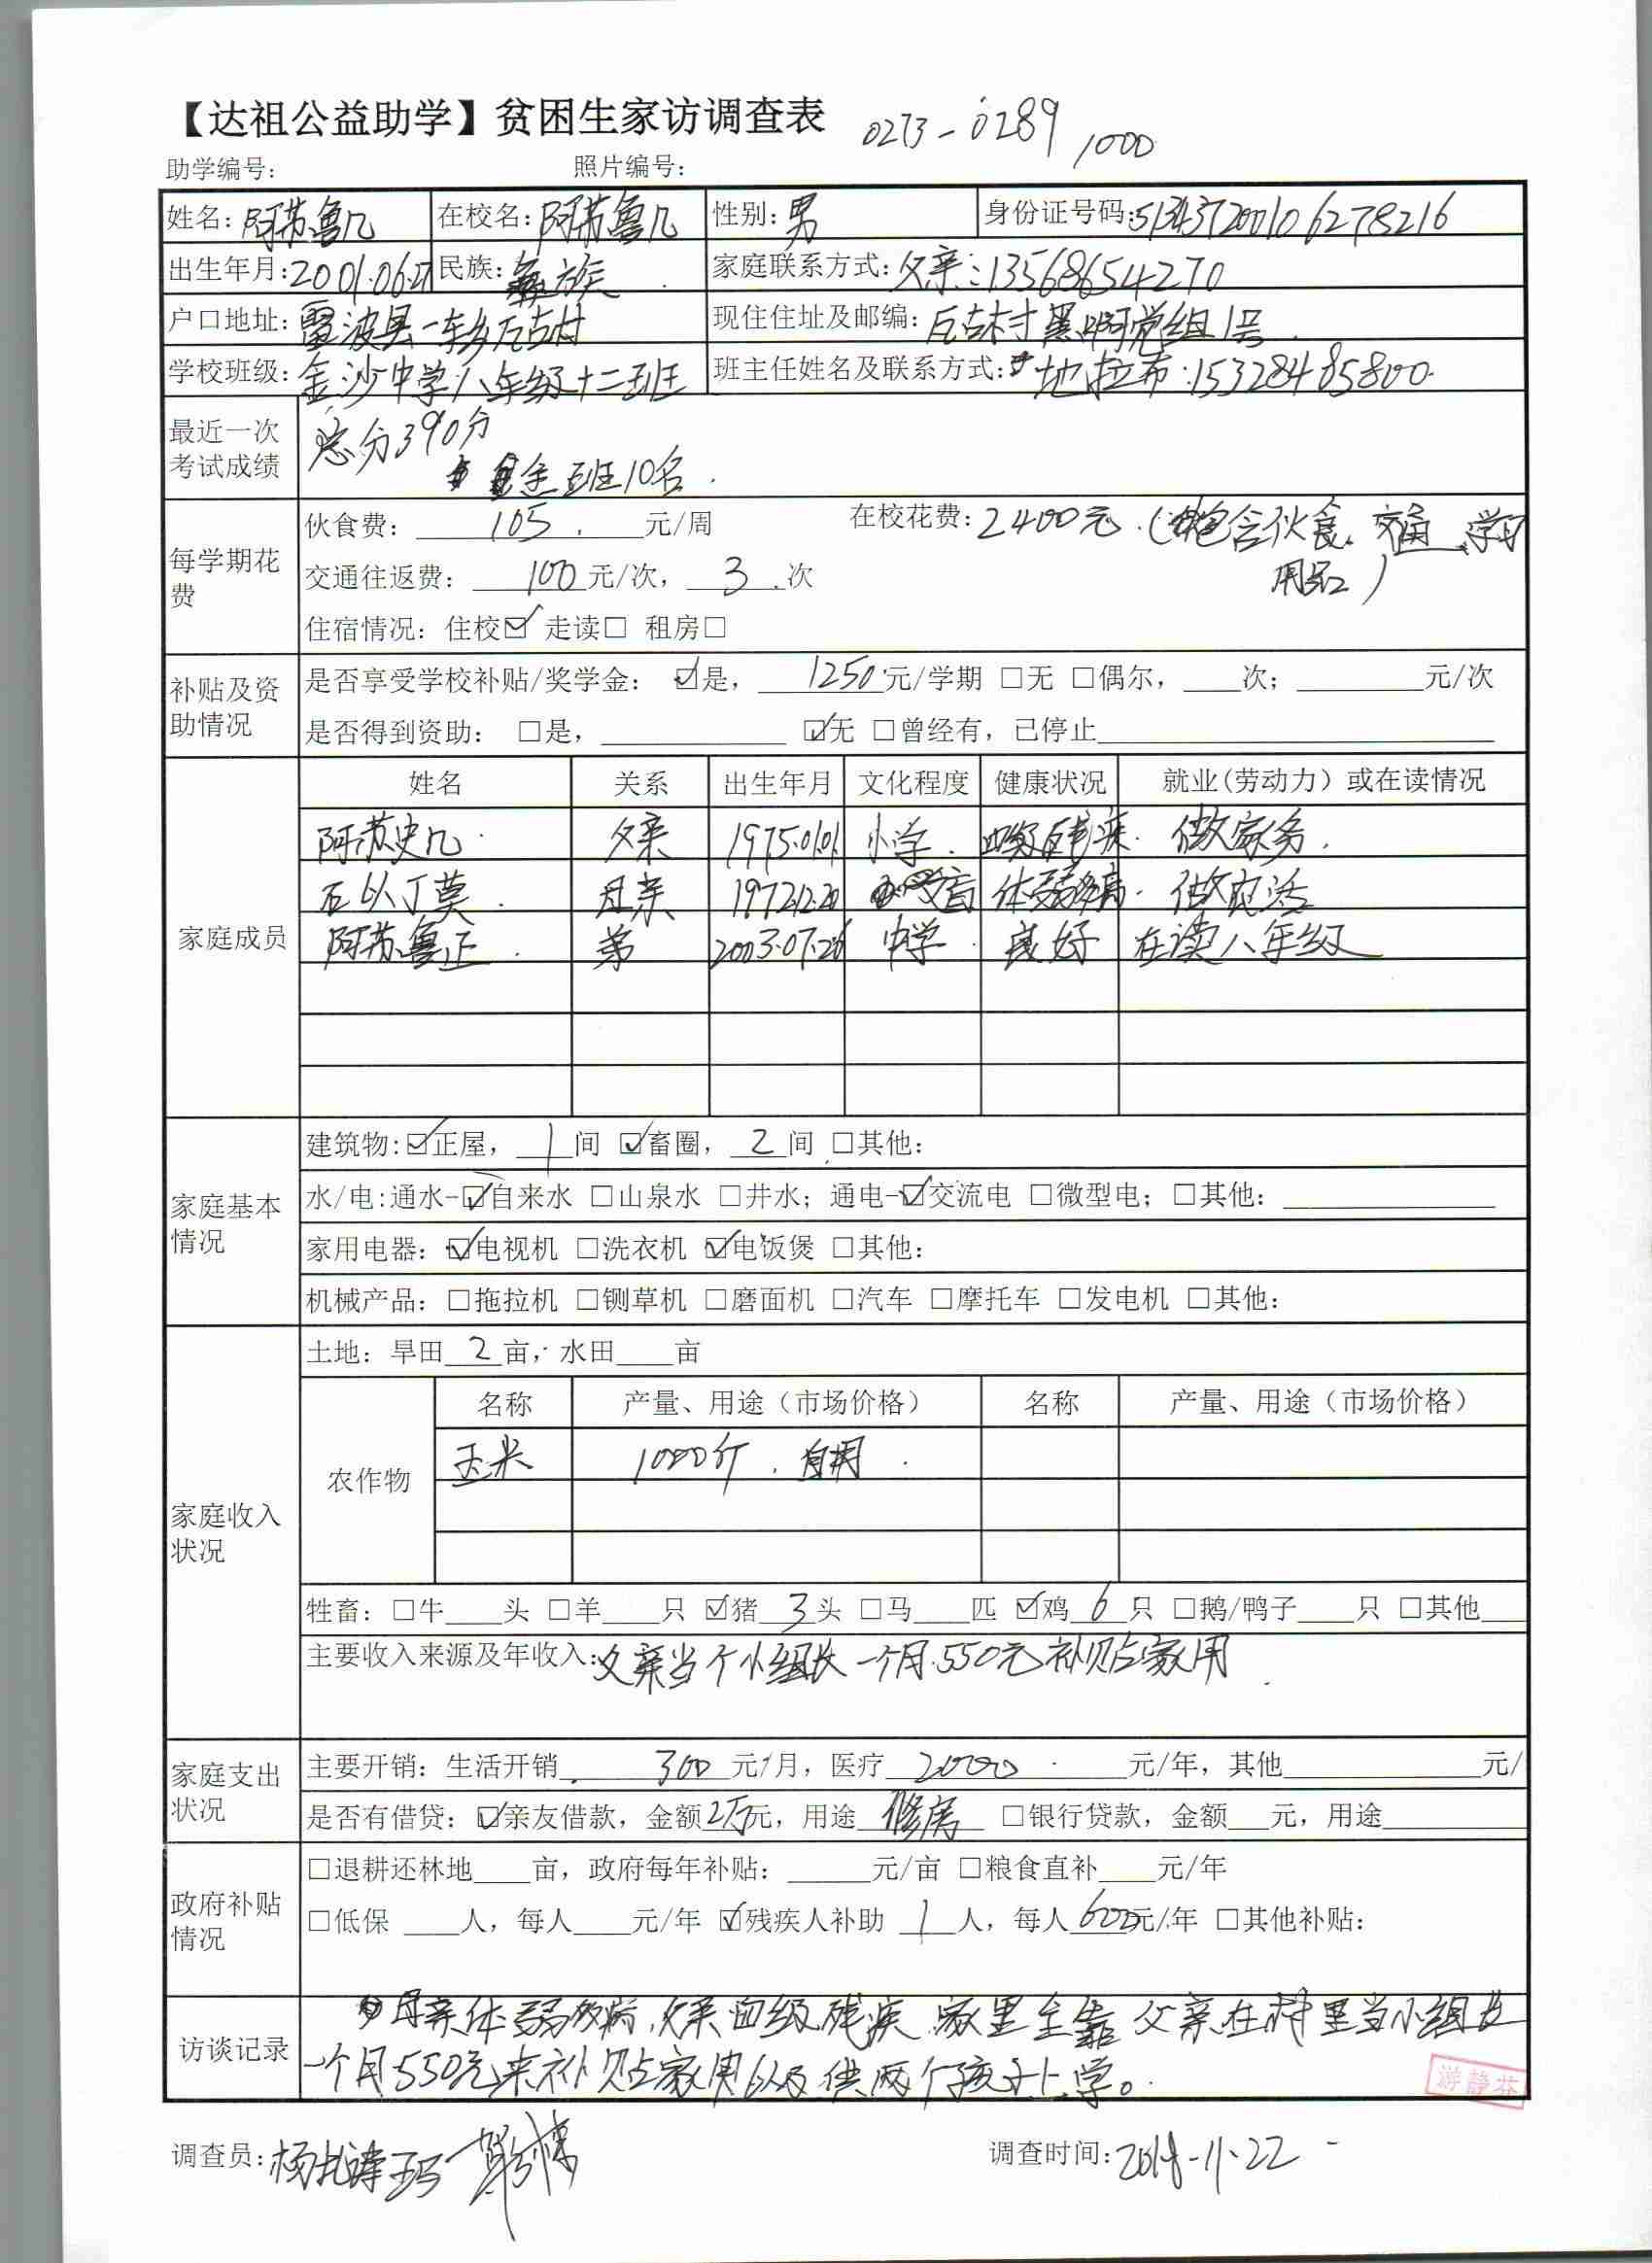 【达祖公益助学】贫困生家访调查表 0273-0289 1000
助学编号: 照片编号:
姓名: 阿苏鲁几 在校名: 阿苏鲁几 性别: 男 身份证号码: 513437200106278216
出生年月: 2001.06.27 民族: 彝族 家庭联系方式: 父亲:13568654270
户口地址: 雷波县一车乡瓦古村 现住住址及邮编: 瓦古村黑 组1号
学校班级: 金沙中学八年级十二班 班主任姓名及联系方式: 地拉布:15328485800
最近一次考试成绩 总分390分
全班10名.
每学期花费 伙食费: 105. 元/周 在校花费: 2400元.(包含伙食、交通、学习用品)
交通往返费: 100 元/次, 3 次
住宿情况: 住校☑ 走读□ 租房□
补贴及资助情况 是否享受学校补贴/奖学金: ☑是, 1250 元/学期 □无 □偶尔, ____次; ________元/次
是否得到资助: □是, ____________ ☑无 □曾经有, 已停止____________
家庭成员 姓名 关系 出生年月 文化程度 健康状况 就业(劳动力)或在读情况
阿苏史几 父亲 1975.01.01 小学 四级残疾 做家务.
石以丁莫 母亲 1972.12.20 文盲 体弱多病 做农活
阿苏鲁正 弟 2003.07.26 中学 良好 在读八年级
家庭基本情况 建筑物: ☑正屋, 1 间 ☑畜圈, 2 间 □其他:
水/电: 通水-☑自来水 □山泉水 □井水; 通电-☑交流电 □微型电; □其他: ________
家用电器: ☑电视机 □洗衣机 ☑电饭煲 □其他:
机械产品: □拖拉机 □铡草机 □磨面机 □汽车 □摩托车 □发电机 □其他:
家庭收入状况 土地: 旱田 2 亩, 水田____亩
农作物 名称 产量、用途(市场价格) 名称 产量、用途(市场价格)
玉米 1000斤. 自用.
牲畜: □牛____头 □羊____只 ☑猪 3 头 □马____匹 ☑鸡 6 只 □鹅/鸭子____只 □其他___
主要收入来源及年收入: 父亲当个小组长一个月550元补贴家用.
家庭支出状况 主要开销: 生活开销 300 元/月, 医疗 20000 元/年, 其他________元/
是否有借贷: ☑亲友借款, 金额 2万 元, 用途 修房 □银行贷款, 金额___元, 用途________
政府补贴情况 □退耕还林地____亩, 政府每年补贴: ____元/亩 □粮食直补____元/年
□低保 ____人, 每人____元/年 ☑残疾人补助 1 人, 每人 600 元/年 □其他补贴:
访谈记录 母亲体弱多病,父亲四级残疾.家里全靠父亲在村里当小组长
一个月550元来补贴家用以及供两个孩子上学。
游静芬
调查员: 调查时间: 2018-11-22